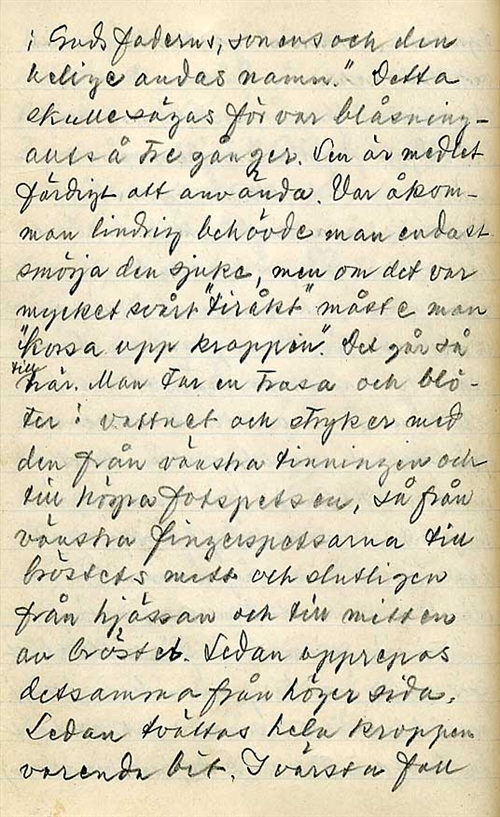 i Guds faderns, sonens och den
helige andas namn." Detta
skulle sägas för var blåsning -
alltså tre gånger. Sen är medlet
färdigt att använda. Var åkom-
man lindrig behövde man endast
smörja den sjuke, men om det var
mycket svårt "tiråkt" måste man
"korsa upp kroppen". Det går så
till här. Man tar en trasa och blö-
ter i vattnet och stryker med
den från vänstra tinningen och
till högra fotspetsen, så från
vänstra fingerspetsarna till
bröstets mitt och slutligen
från hjässan och till mitten
av bröstet. Sedan upprepas
detsamma från höger sida.
Sedan tvättas hela kroppen
varenda bit. I värsta fall